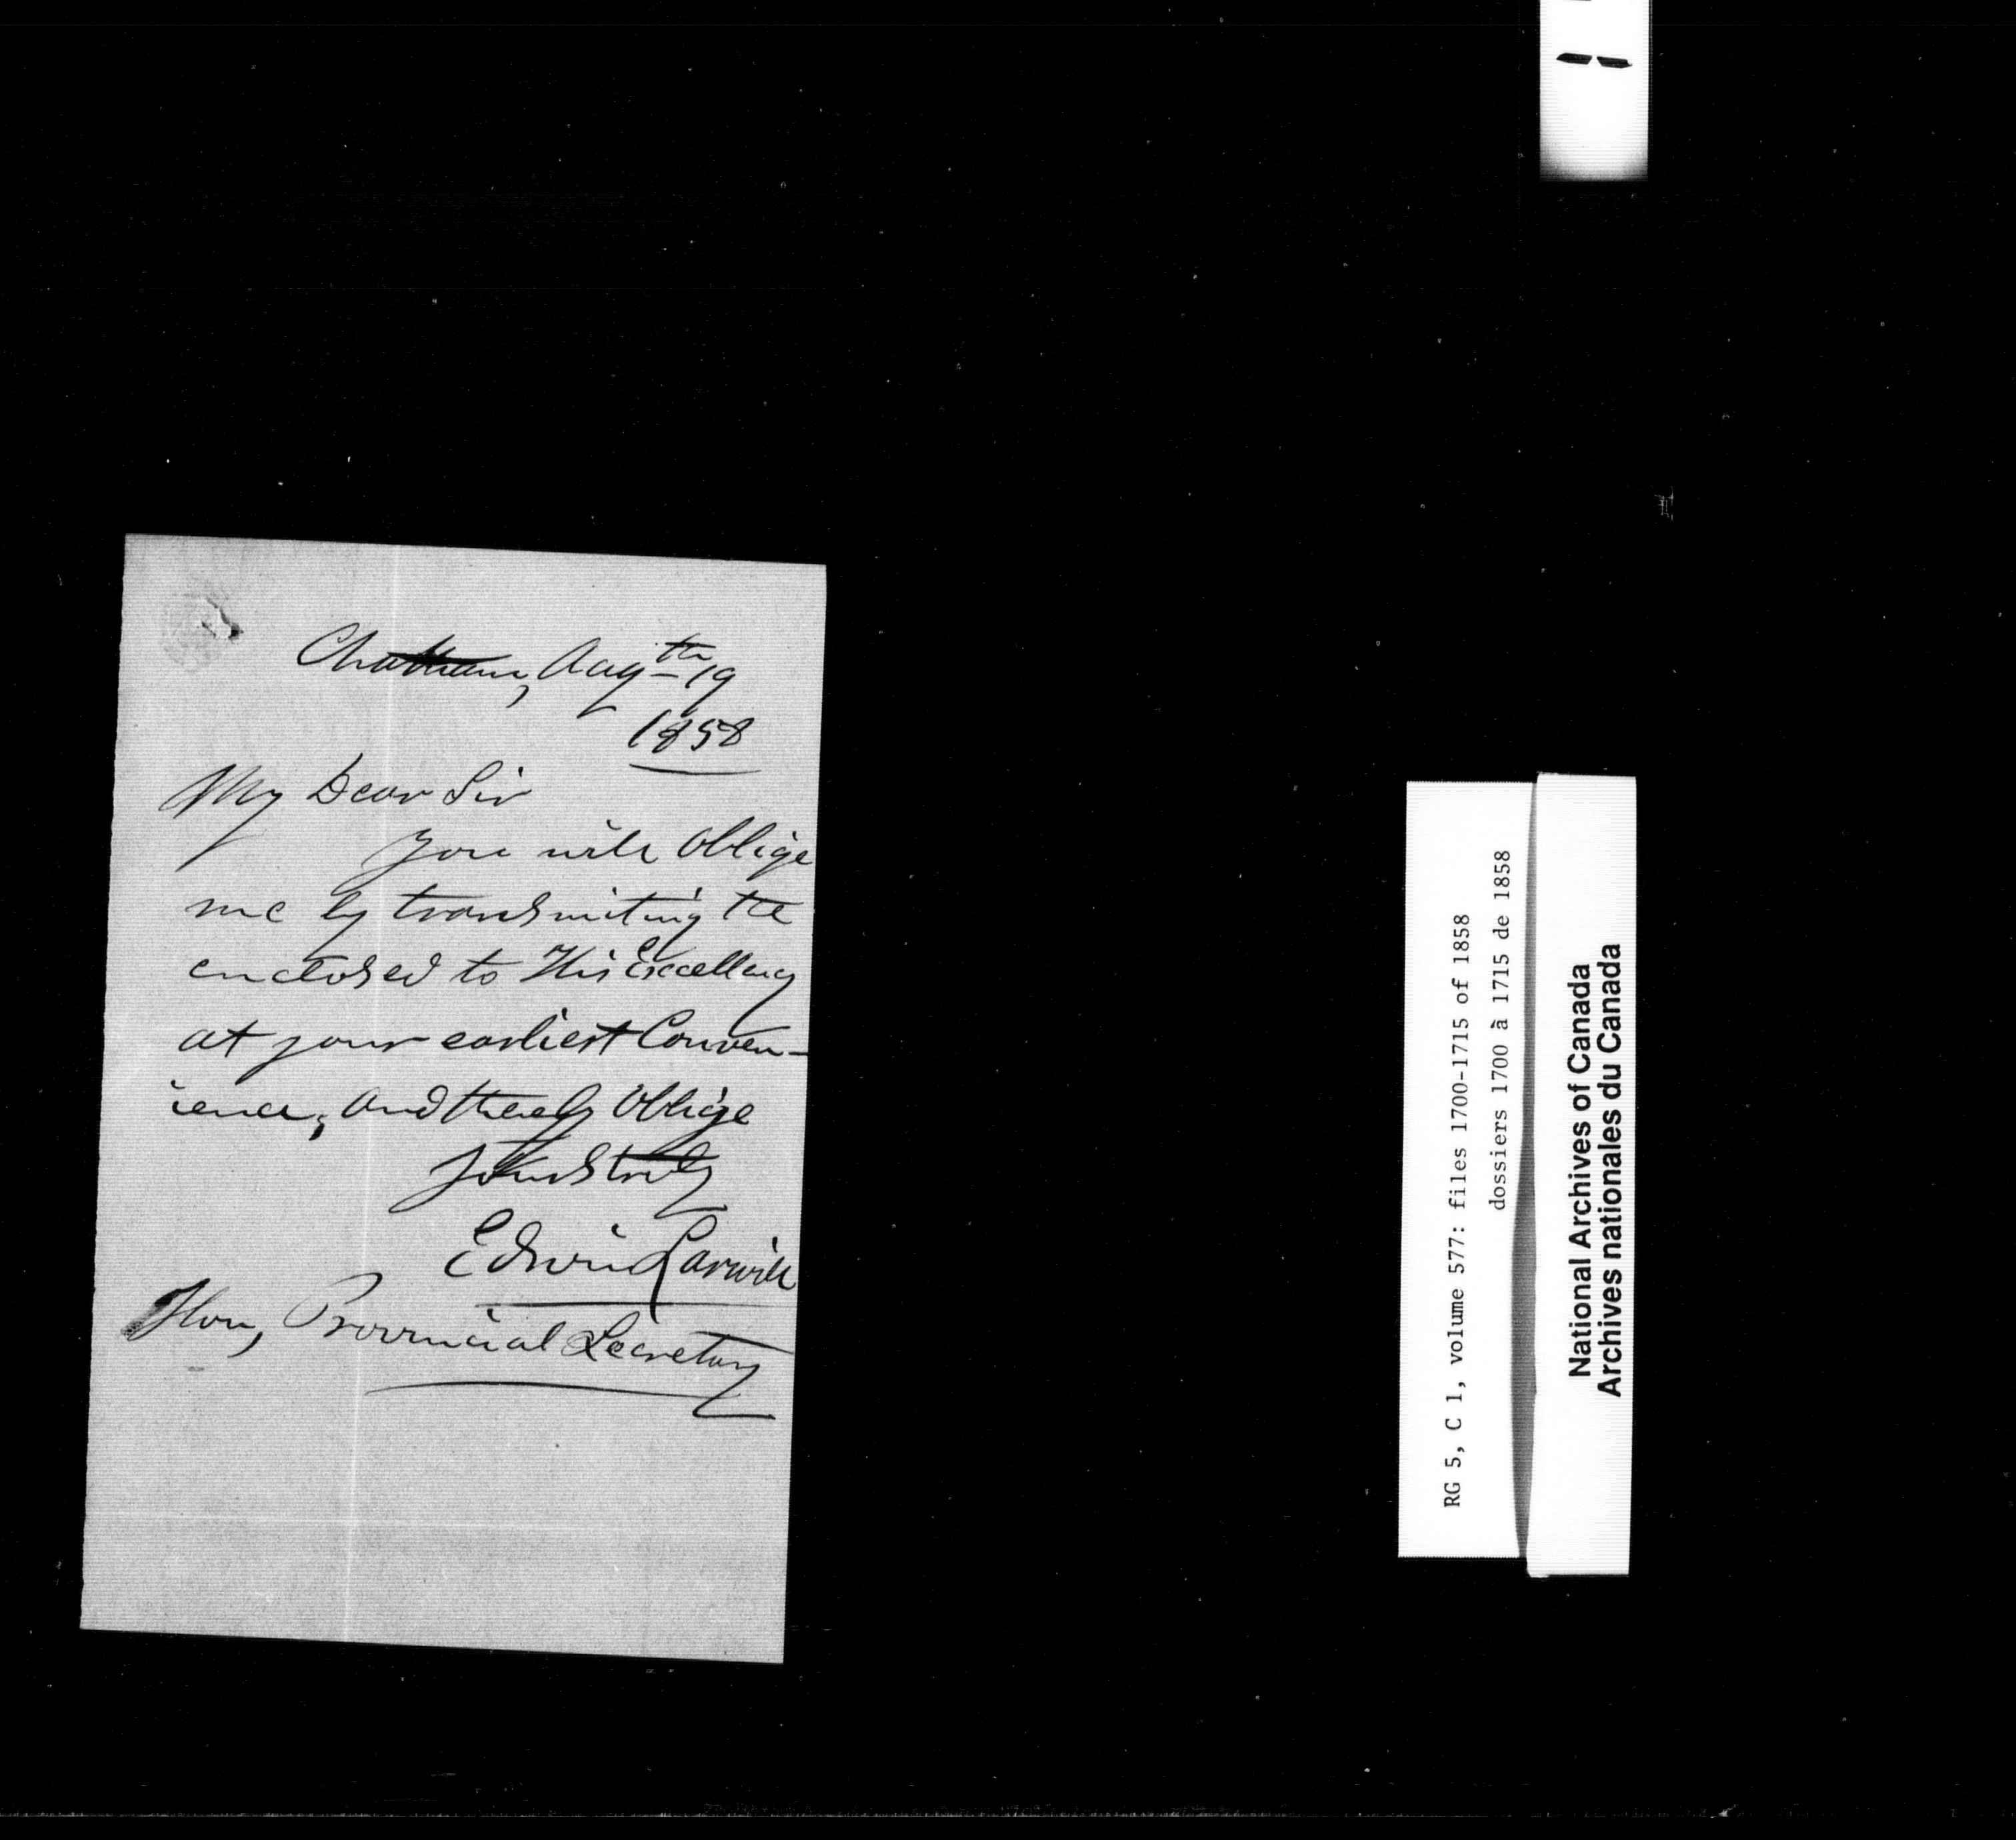 Chatham, Augth 19
1858
My Dear Sir
you will Oblige
me by transmiting the
enclosed to His Excellency
at your earliest Conven-
ience, and thereby Oblige
Yours truly
Edwin Larwill
Hon, Provincial Secretary
RG 5, C 1, volume 577: files 1700-1715 of 1858
dossiers 1700 à 1715 de 1858
National Archives of Canada
Archives nationales du Canada